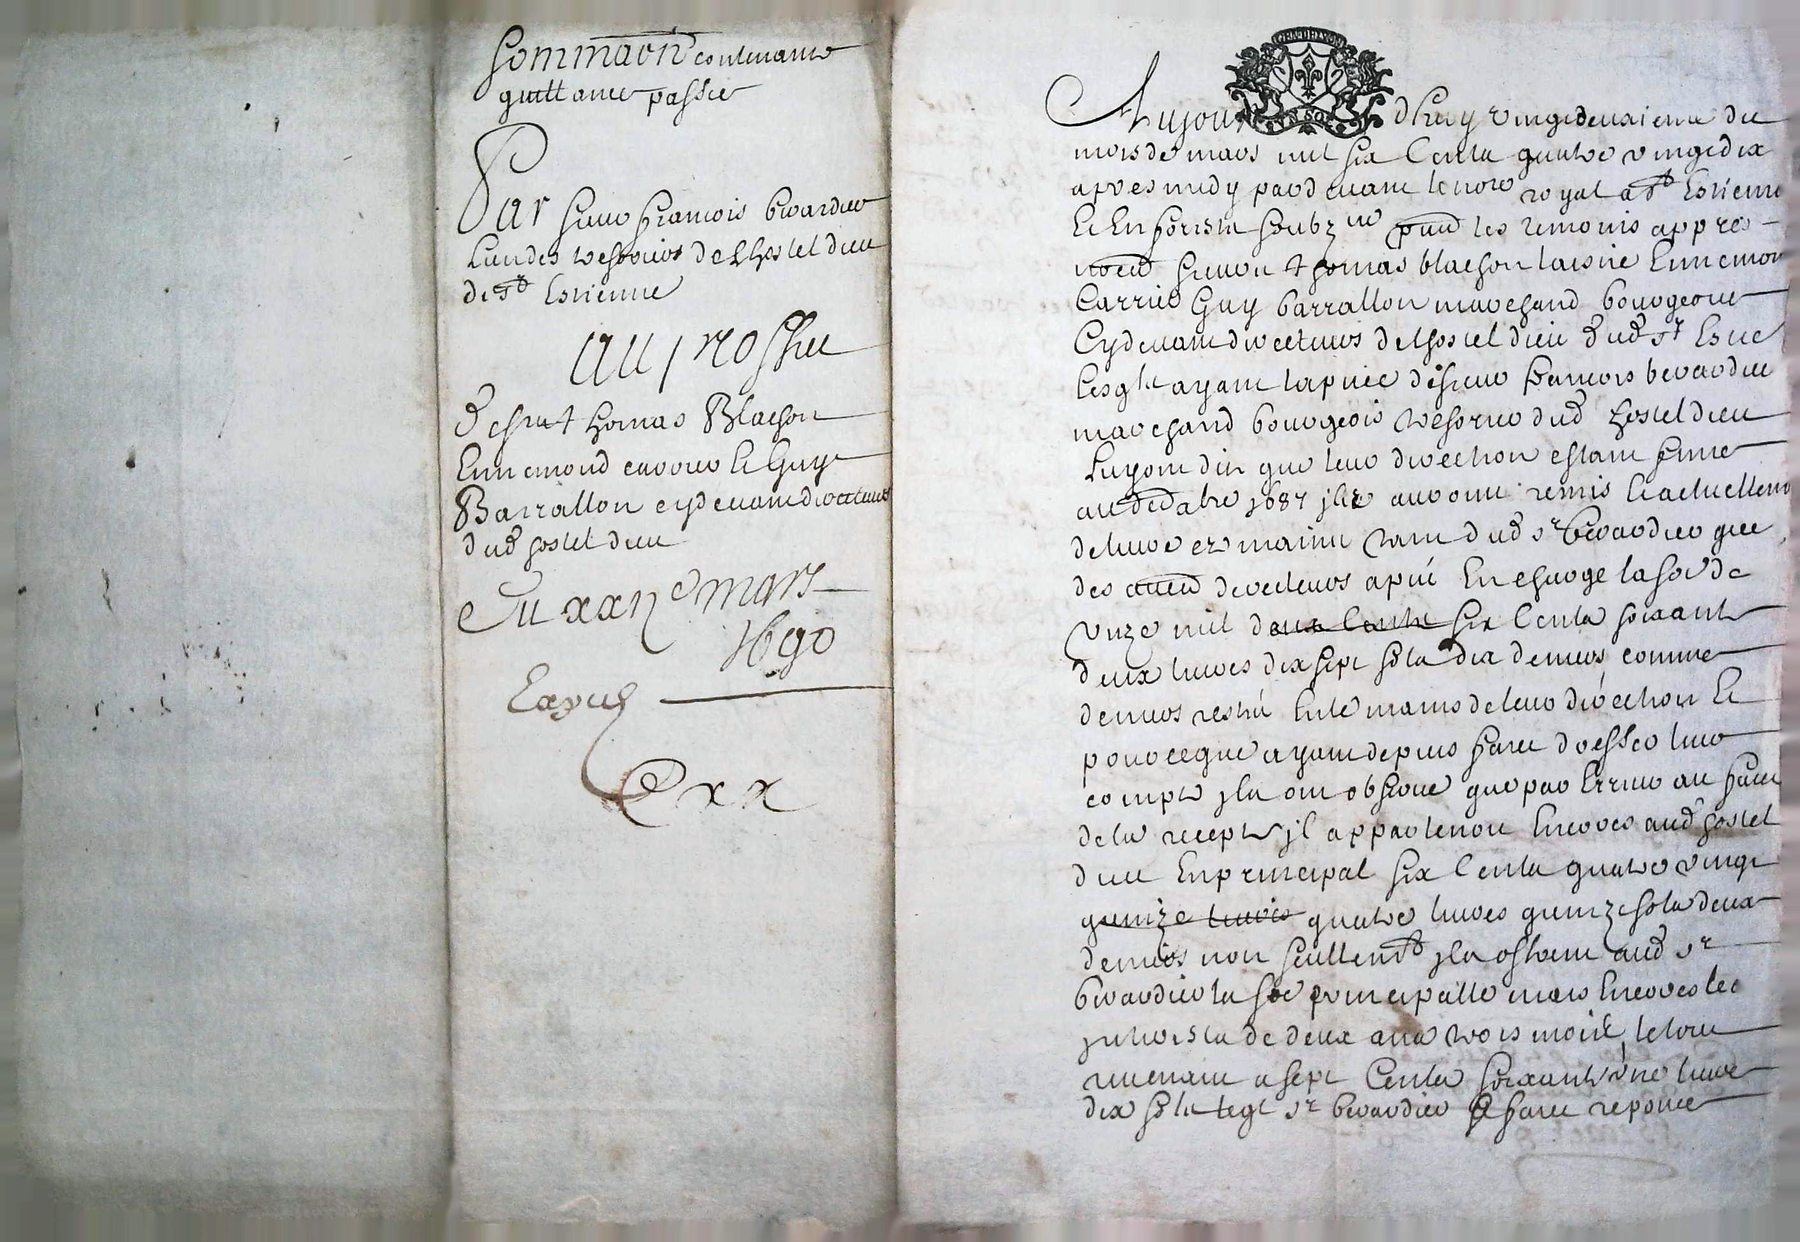 Sommaōn contenante
quittance passée
Par sieur françois berardier
l'un des tresoriers de l'hostel dieu
de St Estienne
au proffict
de sieurs thomas Blachon
Ennemond carrier et Guy
Barrallon cydevant directeurs
dud hostel dieu
Du xxii e mars
1690
Exx
GEN DE LYON
UN SOL
Aujourd'huy vingtdeuxieme du
mois de mars mil six cents quatre vingt dix
apres midy pardevant le nore royal a St Estienne
et En forists soubzne pnts les temoins appres
nōes sieurs thomas blachon laisné Ennemond
Carrier Guy barrallon marchand bourgeois
Cydevant directeurs de lhostel dieu dud St Esne
lesqls ayant la pnce de sieur françois berardier
marchand bourgeois tresorier dud hostel dieu
luy ont dit que leur direction estant finie
au 1687 ils auront remis et actuellement
delivré ez mains tant dud sr berardier que
des directeurs la soe de
unze mil deux cents six cents soixante
deux livres dix sept sols dix deniers comme
deniers restés entre mains de leur direction et
pource que ayant depuis faict dresser leur
compte ils ont observé que par erreur au faict
de la recepte il appartenoit encores aud hostel
dieu En principal six cents quatre vingt
quinze livres quatre livres quinze sols deux
deniers non seullemt ils offrent aud sr
berardier la soe principalle mais encores les
interests de deux ans trois mois le tout
revenant a sept cents soixante une livre
dix sols leql sr berardier a faict reponce